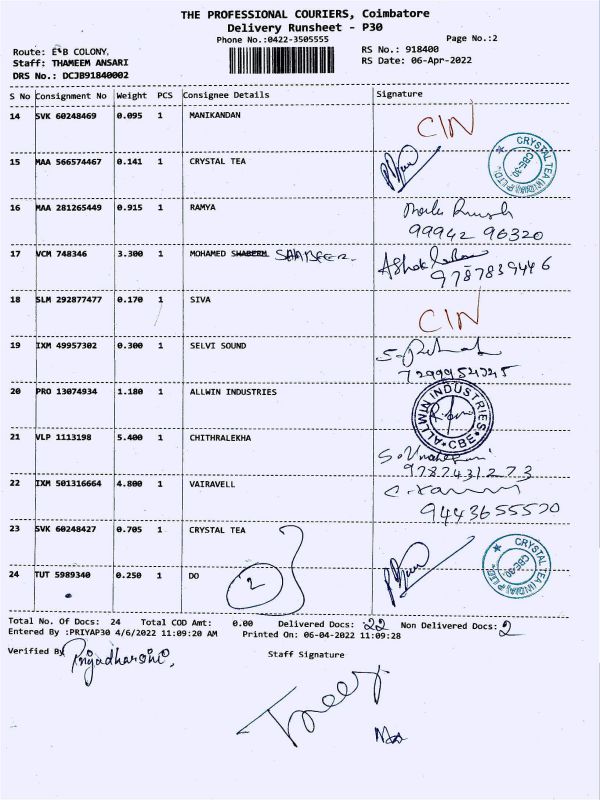 THE PROFESSIONAL COURIERS, Coimbatore
Delivery Runsheet - P30
Phone No.:0422-3505555
Page No.:2
Route: E*B COLONY,
RS No.: 918400
Staff: THAMEEM ANSARI
RS Date: 06-Apr-2022
DRS No.: DCJB91840002
S No Consignment No Weight PCS Consignee Details Signature
14 SVK 60248469 0.095 1 MANIKANDAN CIN
15 MAA 566574467 0.141 1 CRYSTAL TEA
CRYSTAL TEA (INDIA) P LTD. CBE-30
16 MAA 281265449 0.915 1 RAMYA
99942 96320
17 VCM 748346 3.300 1 MOHAMED SHABEERM SHABEER.
Ashok
9787839446
18 SLM 292877477 0.170 1 SIVA CIN
19 IXM 49957302 0.300 1 SELVI SOUND
7299954345
20 PRO 13074934 1.180 1 ALLWIN INDUSTRIES
ALLWIN INDUSTRIES * CBE *
21 VLP 1113198 5.400 1 CHITHRALEKHA
9787431273
22 IXM 501316664 4.800 1 VAIRAVELL
9443655570
23 SVK 60248427 0.705 1 CRYSTAL TEA
CRYSTAL TEA (INDIA) P LTD. CBE-30
24 TUT 5989340 0.250 1 DO 2
Total No. Of Docs: 24 Total COD Amt: 0.00 Delivered Docs: 22 Non Delivered Docs: 2
Entered By :PRIYAP30 4/6/2022 11:09:20 AM Printed On: 06-04-2022 11:09:28
Verified By Priyadharsini.
Staff Signature